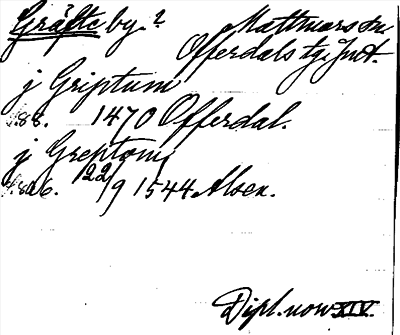 Gräfte by.? Mattmars sn.
Offerdals tg. Jmt.
j Griptum
s.88. 1470 Offerdal.
j Greptom
s.826. 22/9 1544 Alsen.
Dipl. norv XIV.